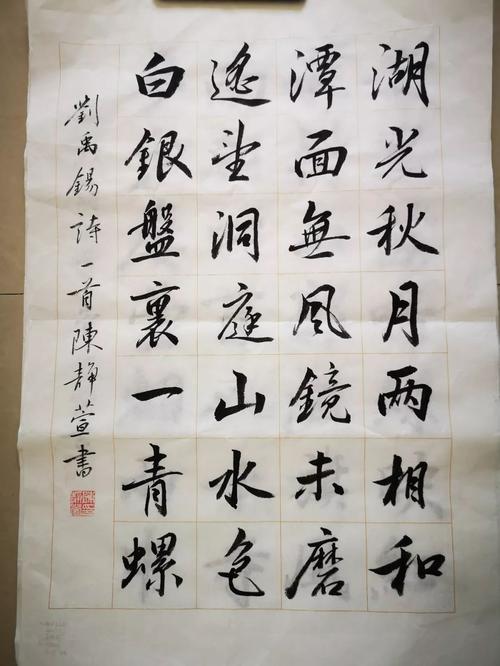 湖光秋月两相和
潭面無風鏡未磨
遙望洞庭山水色
白銀盤裏一青螺
劉禹錫詩一首陳靜萱書